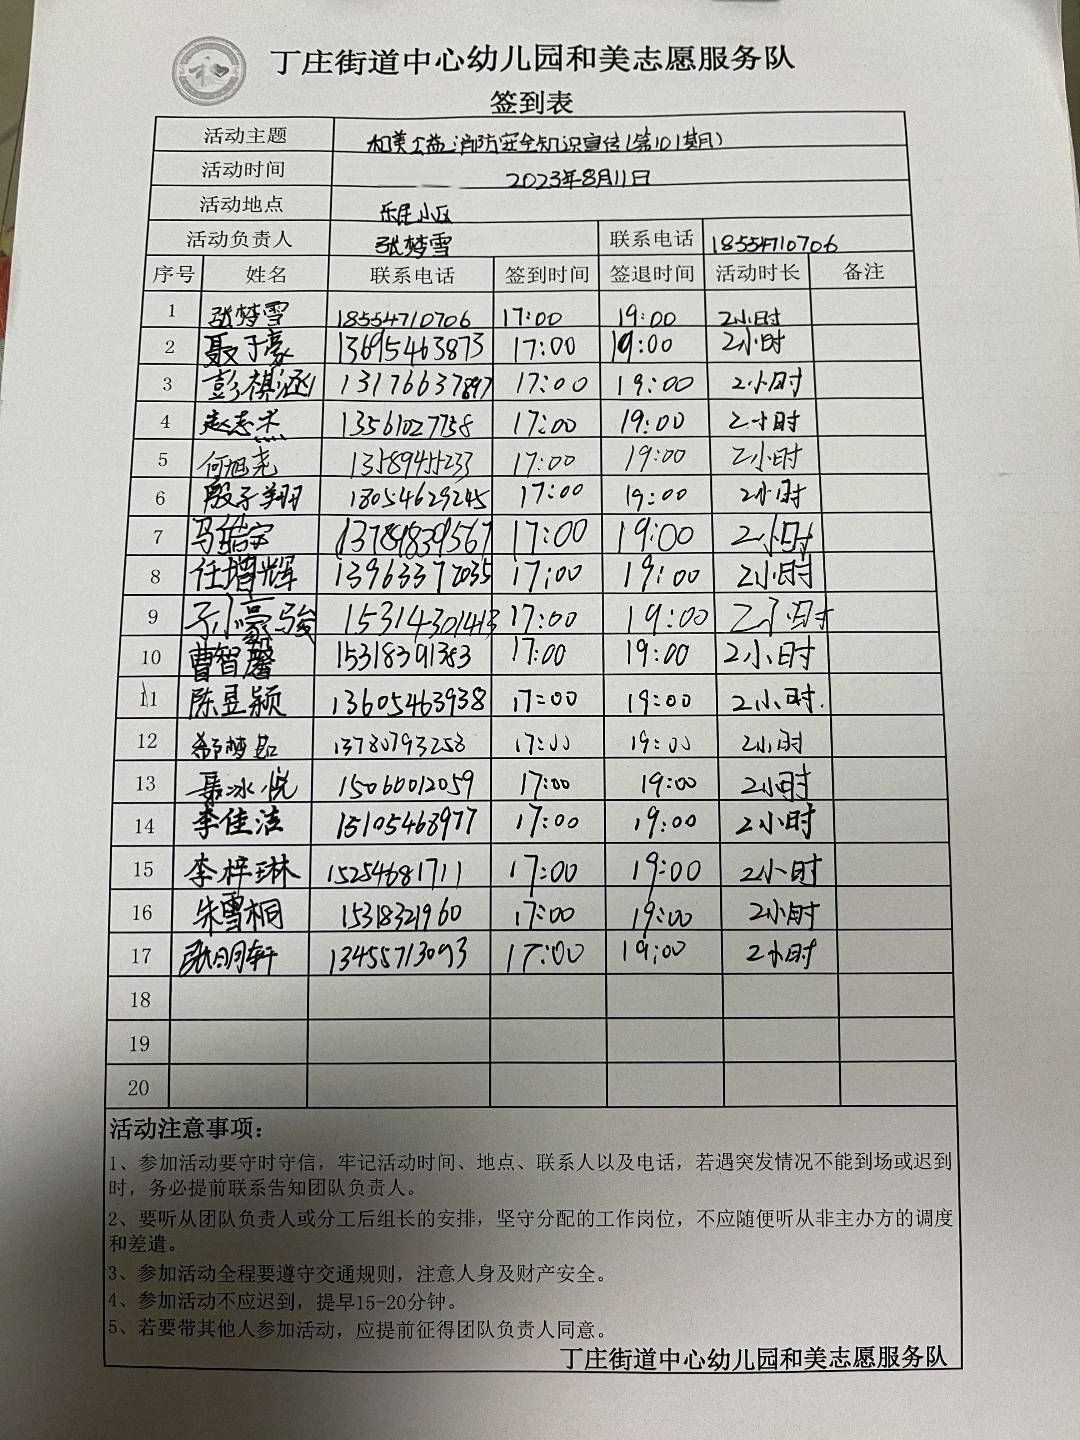 丁庄街道中心幼儿园和美志愿服务队
签到表
活动主题 和美公益消防安全知识宣传(第101期)
活动时间 2023年8月11日
活动地点 乐居小区
活动负责人 张梦雪 联系电话 18554710706
序号 姓名 联系电话 签到时间 签退时间 活动时长 备注
1 张梦雪 18554710706 17:00 19:00 2小时
2 聂子豪 13695463873 17:00 19:00 2小时
3 彭棋涵 13176637897 17:00 19:00 2小时
4 赵志杰 13561027758 17:00 19:00 2小时
5 何旭尧 13589455233 17:00 19:00 2小时
6 殷子翔 18054629245 17:00 19:00 2小时
7 马皓宇 17:00 19:00 2小时
8 任增辉 13963372035 17:00 19:00 2小时
9 15314301413 17:00 19:00 2小时
10 曹智馨 15318391383 17:00 19:00 2小时
11 陈昱颖 13605463938 17:00 19:00 2小时.
12 梦 13780793258 17:00 19:00 2小时
13 聂冰悦 15060012059 17:00 19:00 2小时
14 李佳洁 15105463977 17:00 19:00 2小时
15 李梓琳 15254681711 17:00 19:00 2小时
16 朱雪桐 15318321960 17:00 19:00 2小时
17 张明轩 13455713093 17:00 19:00 2小时
18
19
20
活动注意事项：
1、参加活动要守时守信，牢记活动时间、地点、联系人以及电话，若遇突发情况不能到场或迟到
时，务必提前联系告知团队负责人。
2、要听从团队负责人或分工后组长的安排，坚守分配的工作岗位，不应随便听从非主办方的调度
和差遣。
3、参加活动全程要遵守交通规则，注意人身及财产安全。
4、参加活动不应迟到，提早15-20分钟。
5、若要带其他人参加活动，应提前征得团队负责人同意。
丁庄街道中心幼儿园和美志愿服务队